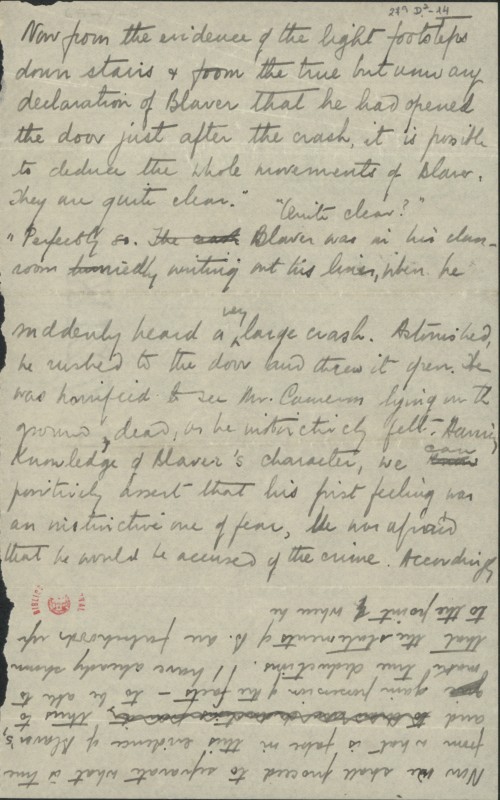 28A D³-14
Now from the evidence of the light footsteps
down stairs & from the true but unwary
declaration of Blaver that he had opened
the door just after the crash, it is possible
to deduce the whole movements of Blaver.
They are quite clear." "Quite clear?"
"Perfectly so. The crash Blaver was in his class-
room hurriedly writing out his lines, when he
suddenly heard a very large crash. Astonished,
he rushed to the door and threw it open. He
was horrified to see Mr. Cameron lying on the
ground, dead, as he instinctively felt. Having
knowledge of Blaver's character, we can
positively assert that his first feeling was
an instinctive one of fear, he was afraid
that he would be accused of the crime. Accordingly
Now we shall proceed to separate what is true
from what is false in this evidence of Blaver's,
and thus to
gain possession of the facts - to be able to
make true deductions. I have already shown
that the statements of B. are falsehoods up
to the point when he